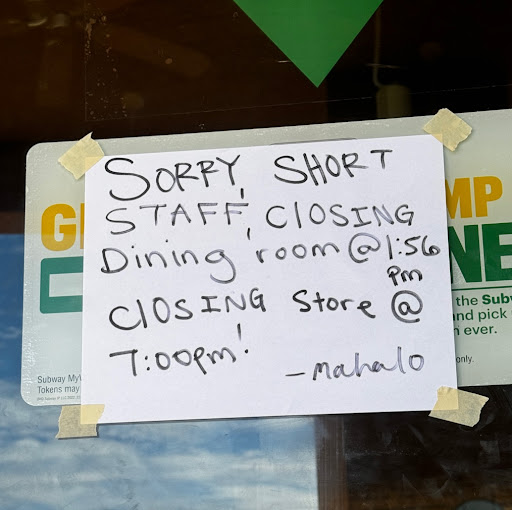 SORRY, SHORT
STAFF, CLOSING
Dining room @ 1:56
pm
CLOSING Store @
7:00pm!
- mahalo
G
MP
NE
the Subw
and pick
ever.
only.
Subway MyW
Tokens may